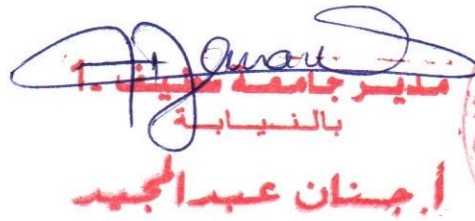 مدير جامعة سطيف 1
بالنيابة
أ. جنان عبد المجيد